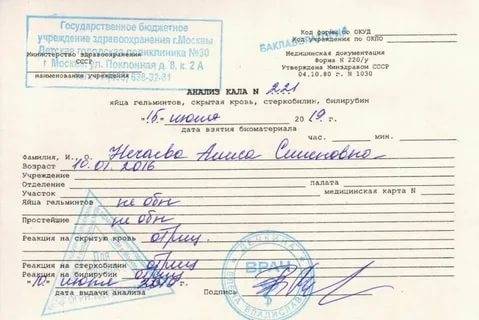 Государственное бюджетное
учреждение здравоохранения г.Москвы
Детская городская поликлиника №30
г Москва ул. Поклонная д. 8, к. 2 А
Министерство здравоохранения
СССР
наименование учреждения
Код формы по ОКУД
Код учреждения по ОКПО
Медицинская документация
Форма N 220/у
Утверждена Минздравом СССР
04.10.80 г. N 1030
АНАЛИЗ КАЛА N 221
яйца гельминтов, скрытая кровь, стеркобилин, билирубин
"16" июля 2019 г.
час. мин.
дата взятия биоматериала
Фамилия, И., О. Нечаева Алиса Семеновна
Возраст 10.01.2016
Учреждение
Отделение палата
Участок медицинская карта N
Яйца гельминтов не обн
Простейшие не обн
Реакция на скрытую кровь отриц.
Реакция на стеркобилин отриц
Реакция на билирубин отриц
июля
дата выдачи анализа
Подпись
Для
ВРАЧ